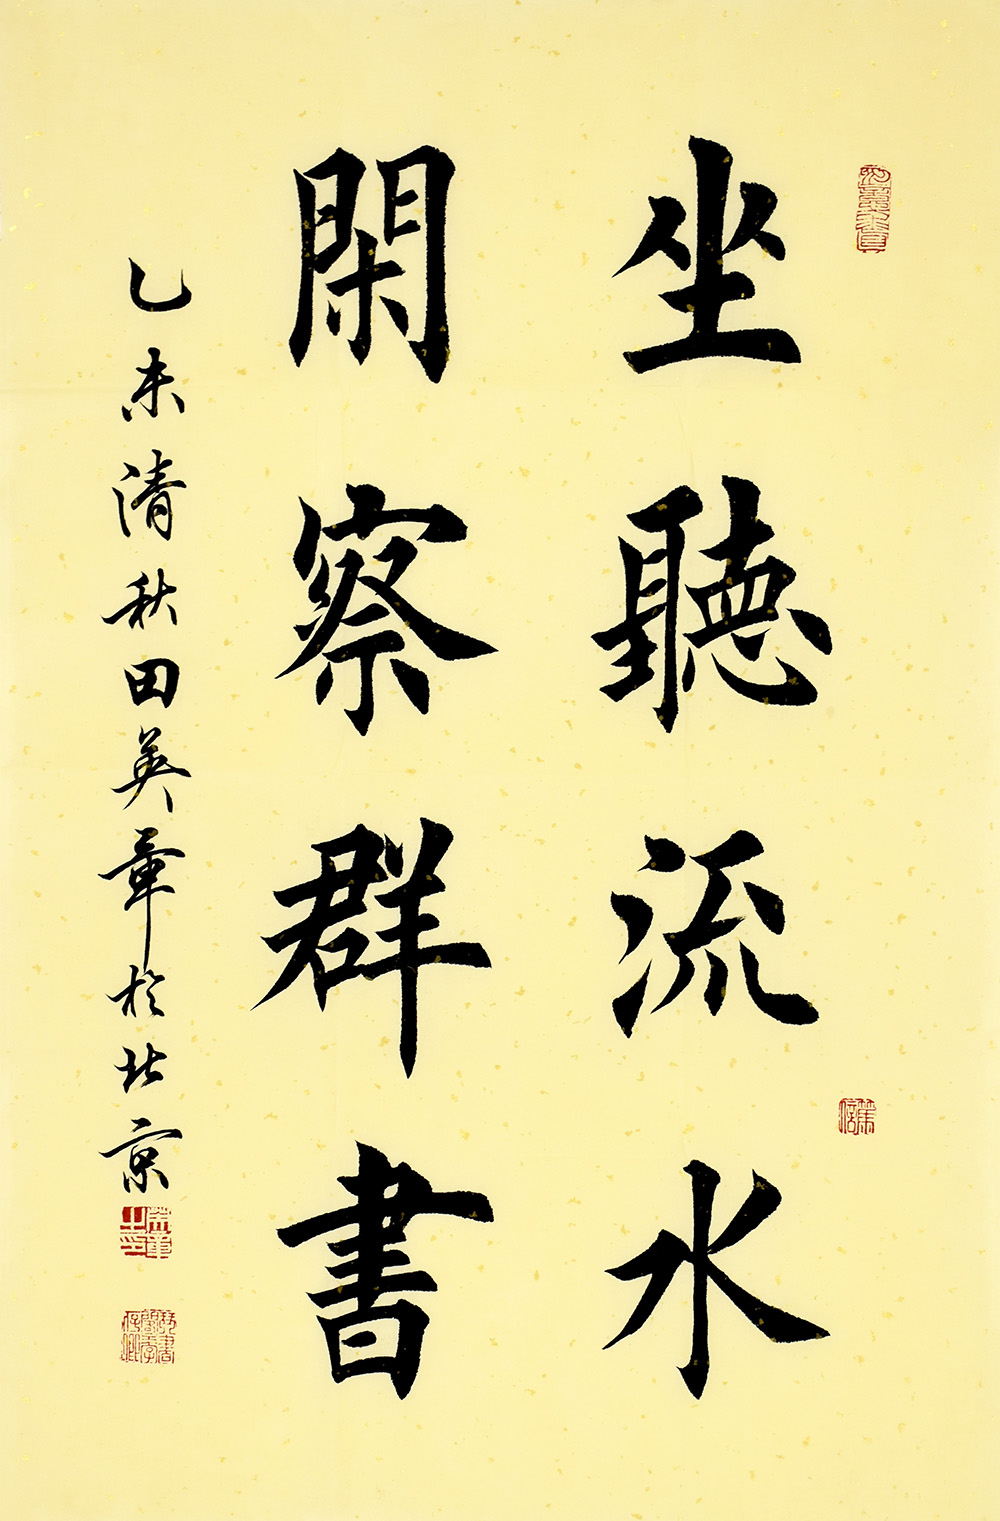 坐聽流水
閑察群書
乙未清秋田英章於北京